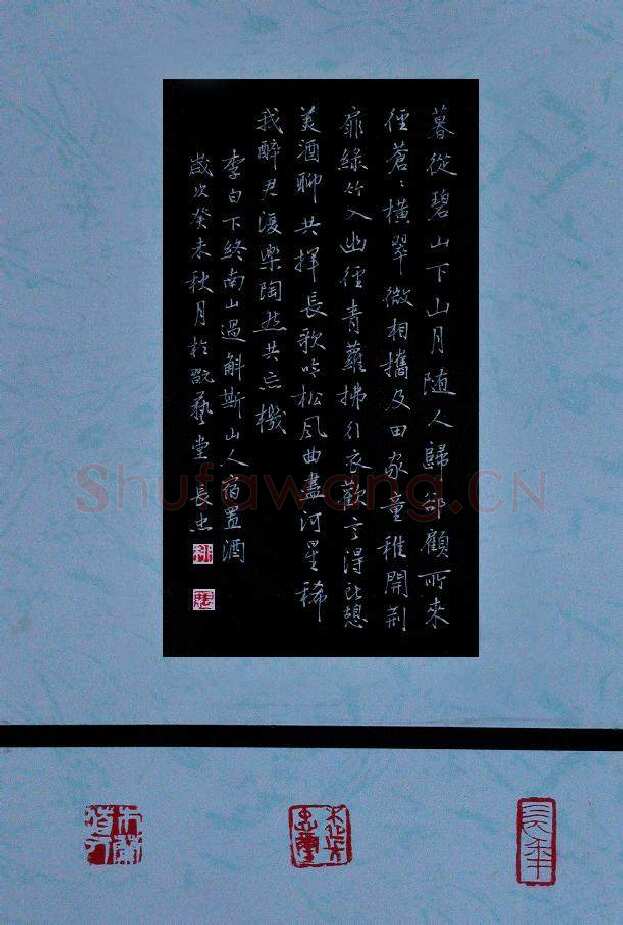 暮從碧山下山月随人歸卻顧所來
徑蒼々横翠微相攜及田家童稚開荆
扉綠竹入幽徑青蘿拂行衣歡言得所憩
美酒聊共揮長歌吟松風曲盡河星稀
我醉君復樂陶然共忘機
李白下終南山過斛斯山人宿置酒
歲次癸未秋月於翫藝堂長忠
Shufawang.CN
長年